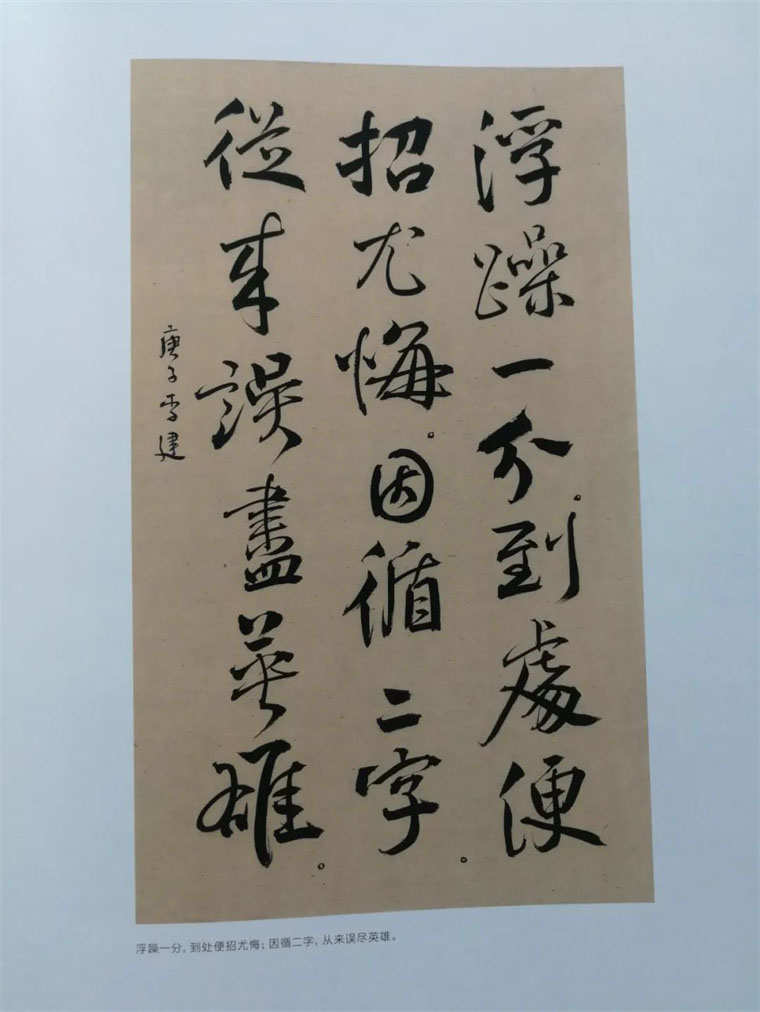 浮躁一分。到處便
招尤悔。因循二字。
從来誤盡英雄。
庚子李建
浮躁一分，到处便招尤悔；因循二字，从来误尽英雄。